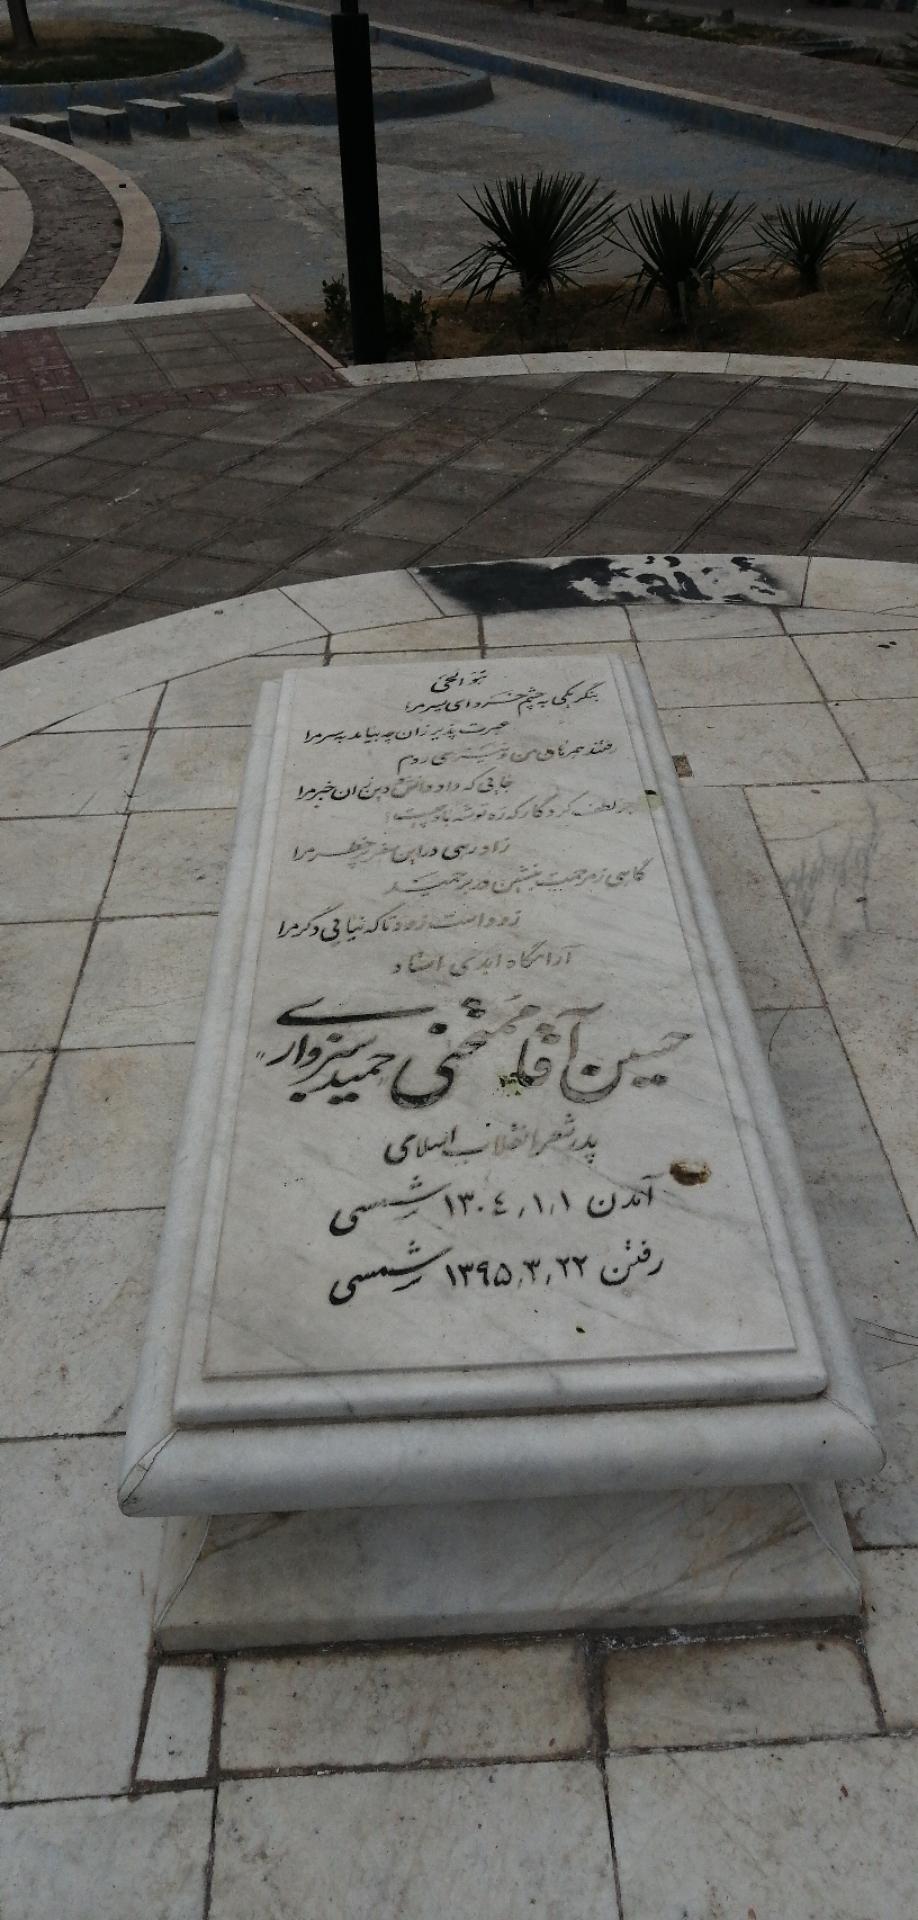 هو الحی
بنگر یکی به چشم خرد ای پسر مرا
عبرت پذیر زان چه بیامد به سر مرا
رفتند همرهان من و نیز می روم
جایی که داد دانش دین زان خبر مرا
جز لطف کردگار که ره توشه باد و نیست
زاد رهی در این سفر پر خطر مرا
گاهی ز مرحمت بنشین در بر حمید
زود است زود تا که نیابی دگر مرا
آرامگاه ابدی استاد
حسین آقا ممتحنی "حمید سبزواری"
پدر شعر انقلاب اسلامی
آمدن ۱۳۰۴/۱/۱ شمسی
رفتن ۱۳۹۵/۳/۲۲ شمسی